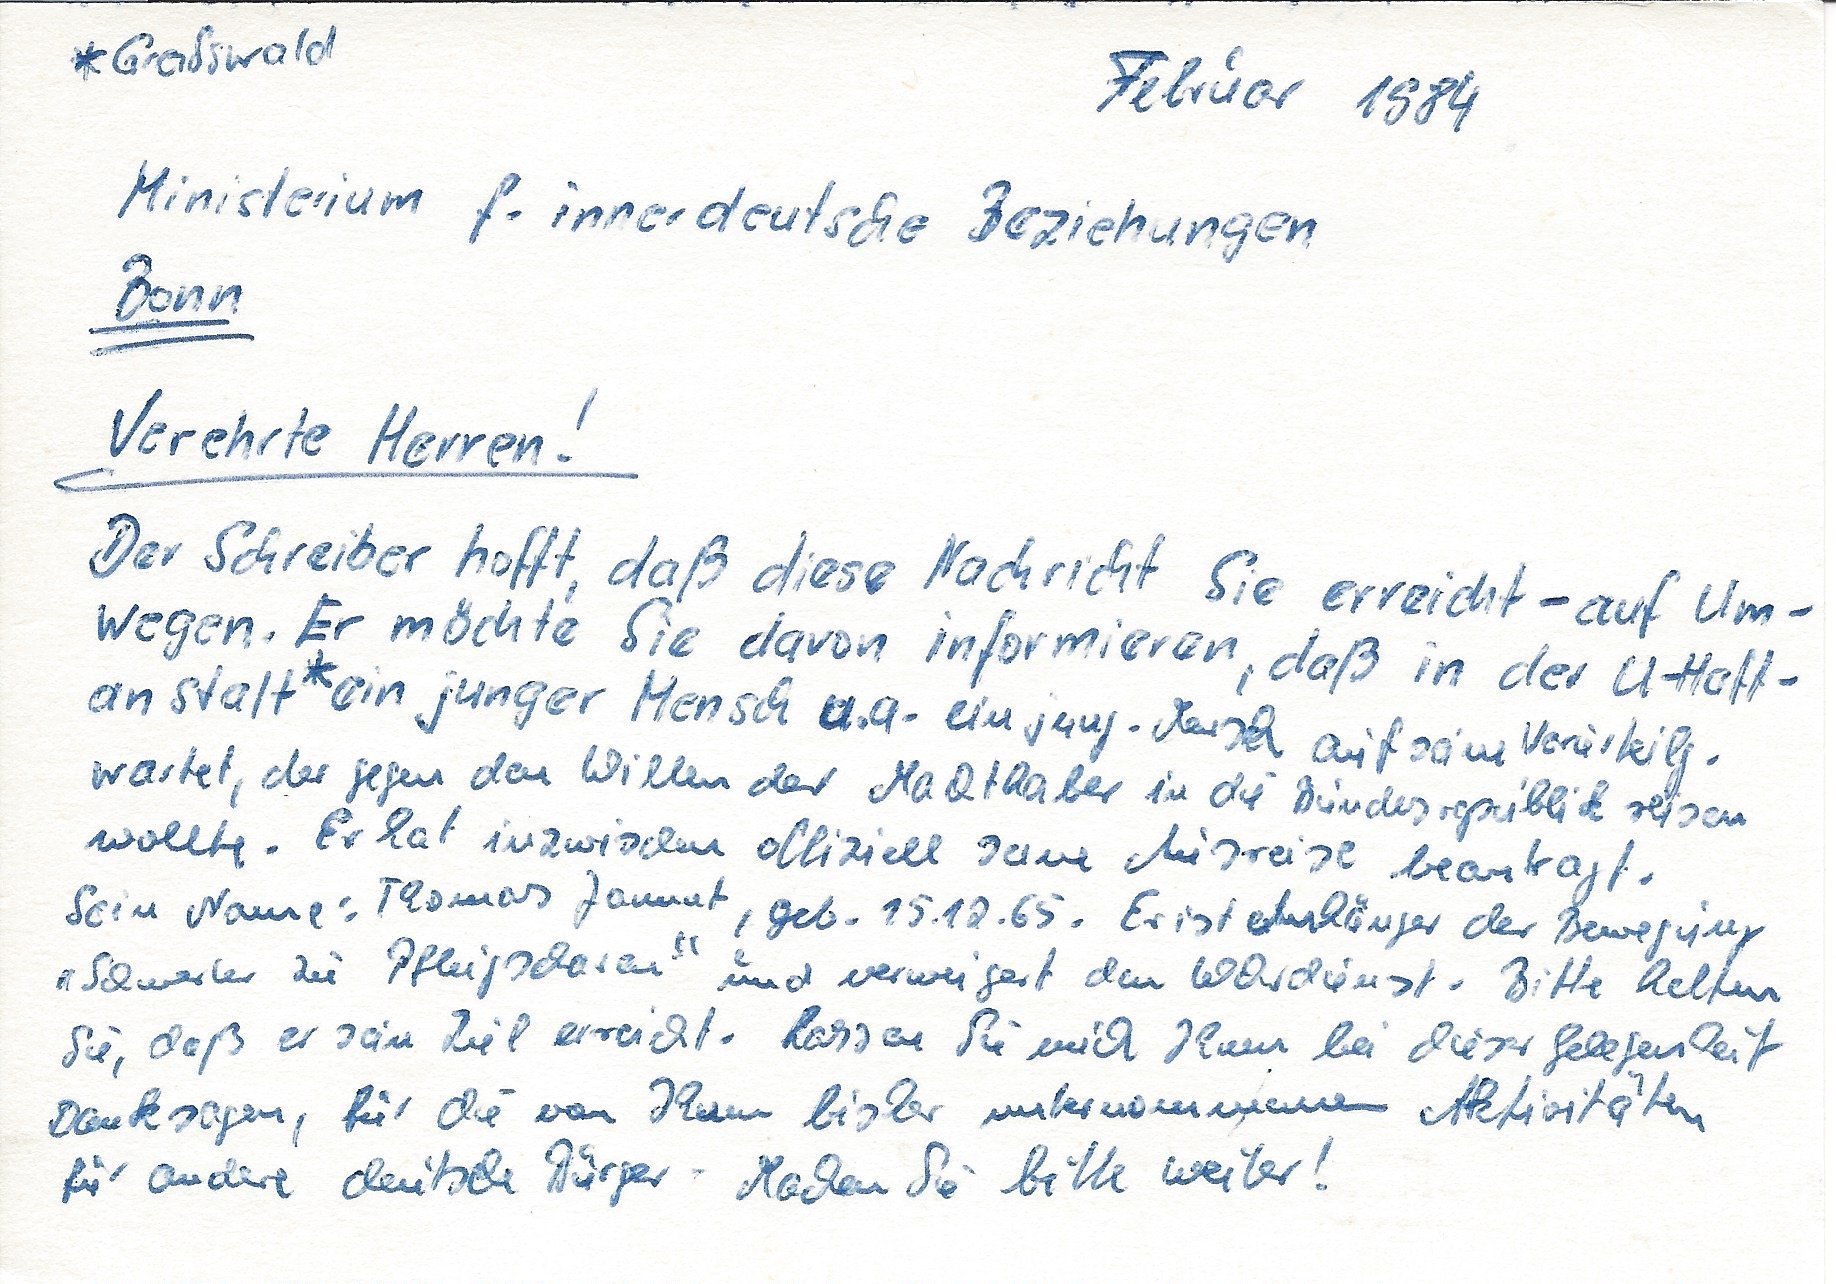 *Greifswald
Februar 1984
Ministerium f. innerdeutsche Beziehungen
Bonn
Verehrte Herren!
Der Schreiber hofft, daß diese Nachricht Sie erreicht - auf Um-
wegen. Er möchte Sie davon informieren, daß in der U-Haft-
anstalt * ein junger Mensch u.a. ein jung. Mensch auf seine Verurteilg.
wartet, der gegen den Willen der Machthaber in die Bundesrepublik reisen
wollte. Er hat inzwischen offiziell seine Ausreise beantragt.
Sein Name: Thomas , geb. 15.12.65. Er ist Anhänger der Bewegung
"Schwerter zu Pflugscharen" und verweigert den Wehrdienst. Bitte helfen
Sie, daß er sein Ziel erreicht. Lassen Sie mich Ihnen bei dieser Gelegenheit
Dank sagen, für die von Ihnen bisher unternommenen Aktivitäten
für andere deutsche Bürger. Machen Sie bitte weiter!